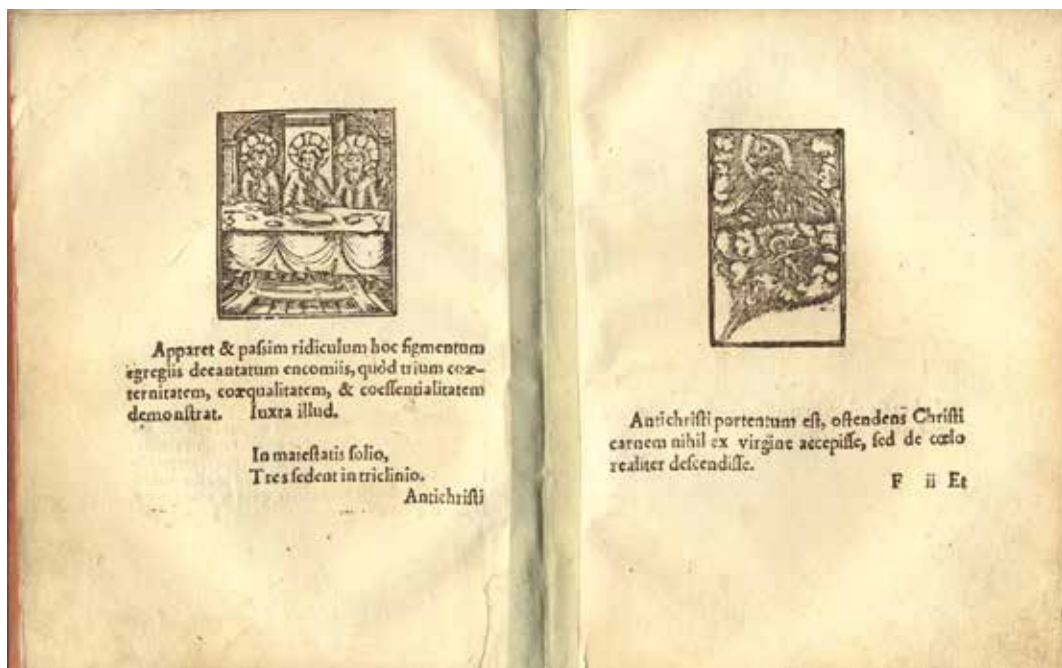 Apparet & paſsim ridiculum hoc figmentum
egregiis decantatum encomiis, quòd trium coæ-
ternitatem, coæqualitatem, & coeſſentialitatem
demonſtrat. Iuxta illud.
In maieſtatis ſolio,
Tres ſedent in triclinio.
Antichriſti
Antichriſti portentum eſt, oſtendens Chriſti
carnem nihil ex virgine accepiſſe, ſed de cœlo
realiter deſcendiſſe.
F ii Et